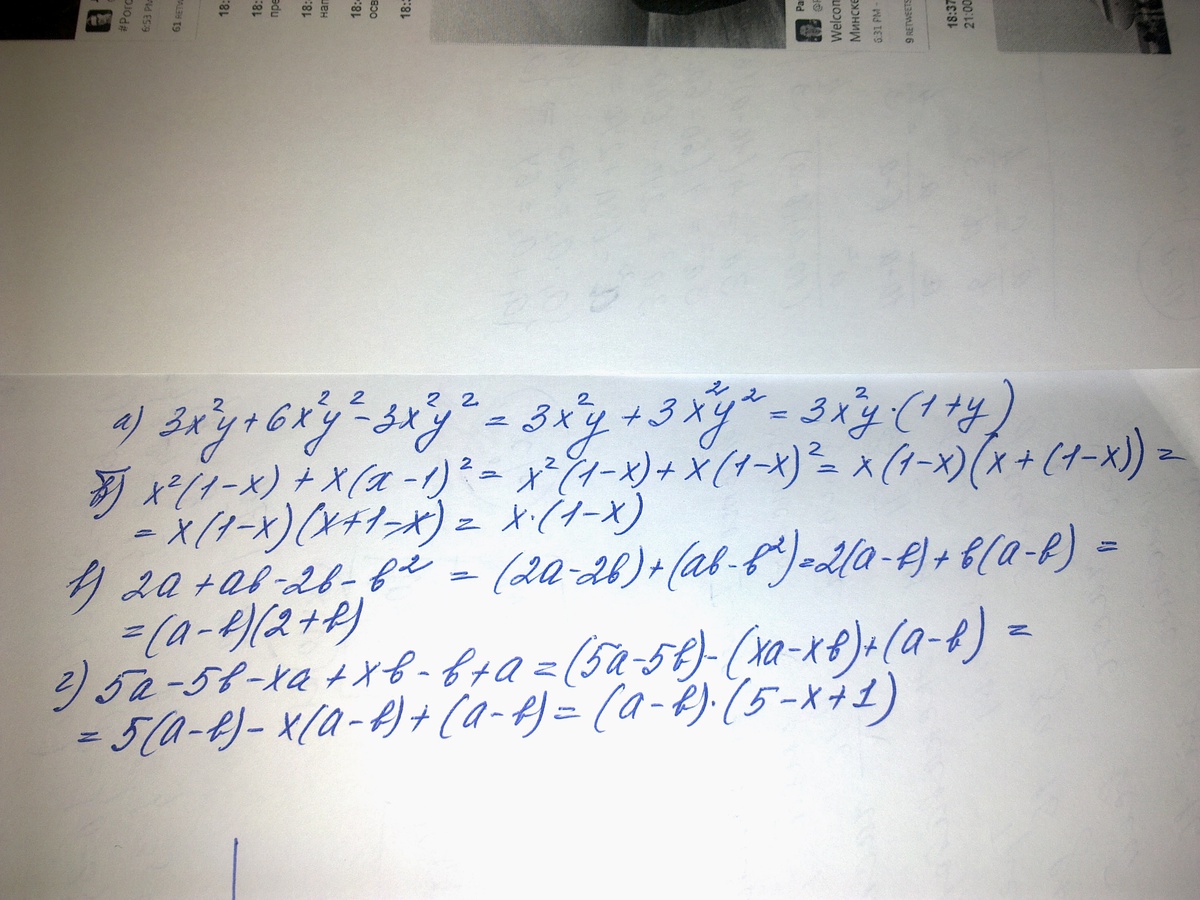 #Рого
6:53 PM
61 RETW
18:
18:
пре
18:
нап
18:4
осв
18:
Welcom
Минске
6:31 PM -
9 RETWEETS
18:37
21:00
а) 3x²y + 6x²y² - 3x²y² = 3x²y + 3x²y² = 3x²y·(1+y)
б) x²(1-x) + x(x-1)² = x²(1-x) + x(1-x)² = x(1-x)(x+(1-x)) =
= x(1-x)(x+1-x) = x·(1-x)
в) 2a + ab - 2b - b² = (2a-2b) + (ab-b²) = 2(a-b) + b(a-b) =
= (a-b)(2+b)
г) 5a - 5b - xa + xb - b + a = (5a-5b) - (xa-xb) + (a-b) =
= 5(a-b) - x(a-b) + (a-b) = (a-b)·(5-x+1)